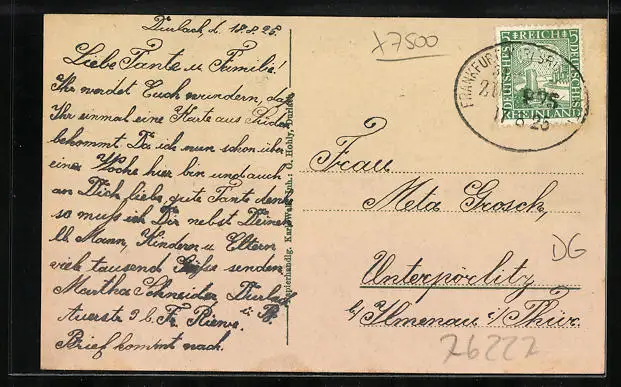 Durlach, d. 18.8.25.
Liebe Tante u. Familie!
Ihr werdet Euch wundern, daß
Ihr einmal eine Karte aus
bekommt. Da ich nun schon über
eine Woche hier bin und auch
an Dich, liebe, gute Tante denke
so muß ich Dir nebst Deinem
lb. Mann, Kindern u. Eltern
viele tausend Grüße senden
Martha Schneider, Durlach
Auerstr. 9 b. Fr.
Brief kommt nach.
Papierhandlg. Karl Walz, Inh.: O. Hohly, Durlach
x7500
DEUTSCHES REICH
5 5
RHEINLAND
FRANKFURT
Frau
Meta Grosch,
Unterpörlitz
b/Ilmenau i/Thür.
DG
76222